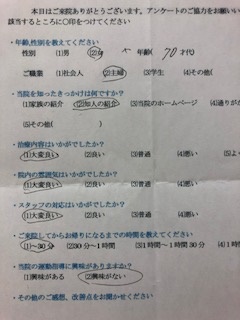 本日はご来院ありがとうございます。アンケートのご協力をお願いい
該当するところに○印をつけてください
・年齢,性別を教えてください
性別 (1)男 (2)女 年齢( 70 才代)
ご職業 (1)社会人 (2)主婦 (3)学生 (4)その他(
・当院を知ったきっかけは何ですか?
(1)家族の紹介 (2)知人の紹介 (3)当院のホームページ (4)通りが
(5)その他( )
・治療内容はいかがでしたか?
(1)大変良い (2)良い (3)普通 (4)悪い
・院内の雰囲気はいかがでしたか?
(1)大変良い (2)良い (3)普通 (4)悪い
・スタッフの対応はいかがでしたか?
(1)大変良い (2)良い (3)普通 (4)悪い
・ご来院してからお帰りになるまでの時間を教えてください
(1)~30分 (2)30分~1時間 (3)1時間~1時間30分 (4)1
・当院の運動指導に興味がありますか?
(1)興味がある (2)興味がない
・その他のご感想、改善点をお聞かせください